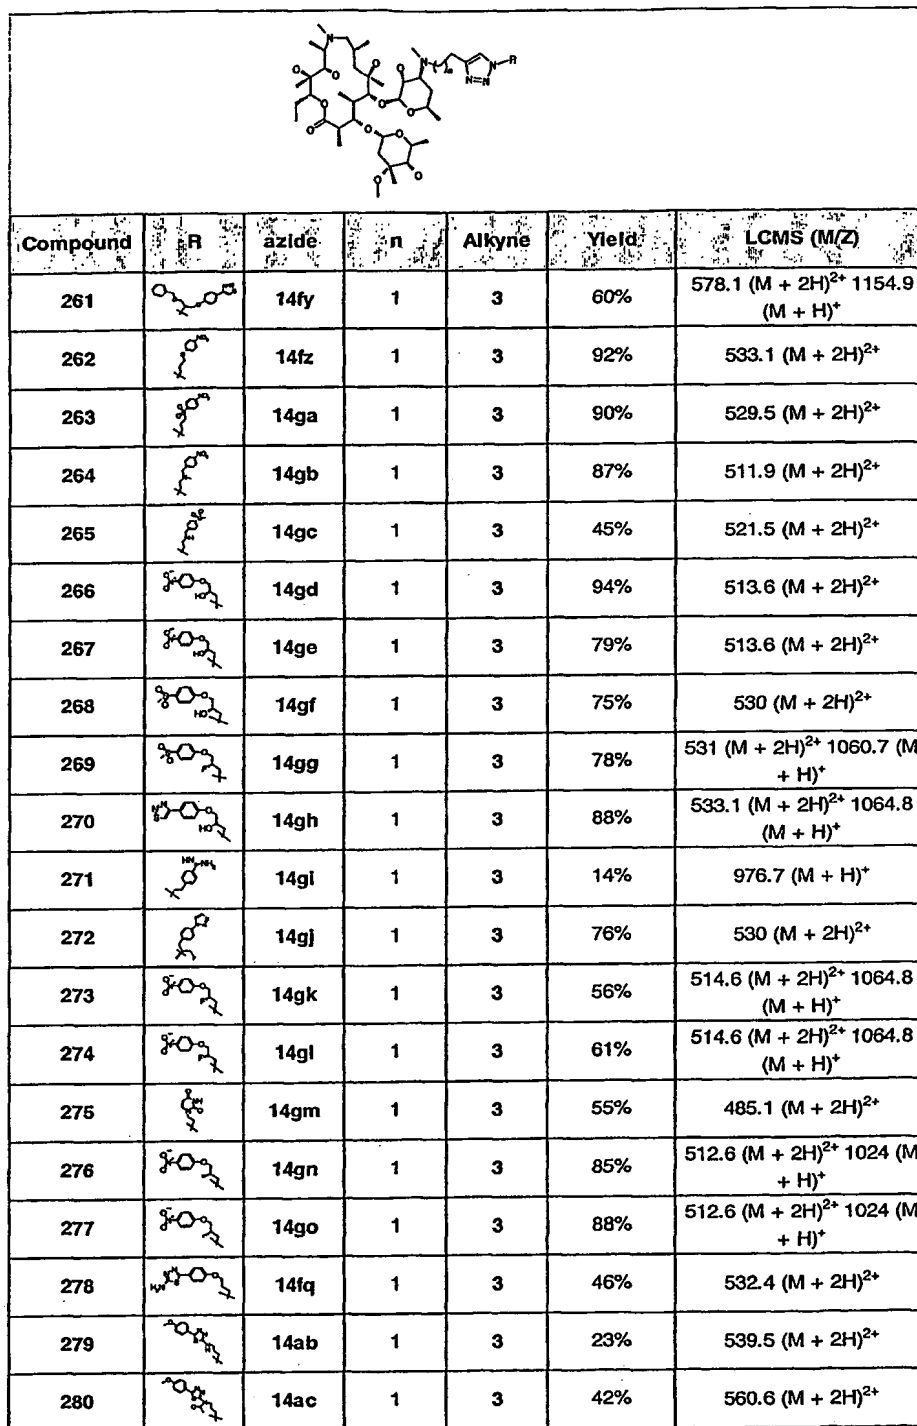 Compound R azide n Alkyne Yield LCMS (M/Z)
261 14fy 1 3 60% 578.1 (M + 2H)²⁺ 1154.9
(M + H)⁺
262 14fz 1 3 92% 533.1 (M + 2H)²⁺
263 14ga 1 3 90% 529.5 (M + 2H)²⁺
264 14gb 1 3 87% 511.9 (M + 2H)²⁺
265 14gc 1 3 45% 521.5 (M + 2H)²⁺
266 14gd 1 3 94% 513.6 (M + 2H)²⁺
267 14ge 1 3 79% 513.6 (M + 2H)²⁺
268 14gf 1 3 75% 530 (M + 2H)²⁺
269 14gg 1 3 78% 531 (M + 2H)²⁺ 1060.7 (M
+ H)⁺
270 14gh 1 3 88% 533.1 (M + 2H)²⁺ 1064.8
(M + H)⁺
271 14gi 1 3 14% 976.7 (M + H)⁺
272 14gj 1 3 76% 530 (M + 2H)²⁺
273 14gk 1 3 56% 514.6 (M + 2H)²⁺ 1064.8
(M + H)⁺
274 14gl 1 3 61% 514.6 (M + 2H)²⁺ 1064.8
(M + H)⁺
275 14gm 1 3 55% 485.1 (M + 2H)²⁺
276 14gn 1 3 85% 512.6 (M + 2H)²⁺ 1024 (M
+ H)⁺
277 14go 1 3 88% 512.6 (M + 2H)²⁺ 1024 (M
+ H)⁺
278 14fq 1 3 46% 532.4 (M + 2H)²⁺
279 14ab 1 3 23% 539.5 (M + 2H)²⁺
280 14ac 1 3 42% 560.6 (M + 2H)²⁺